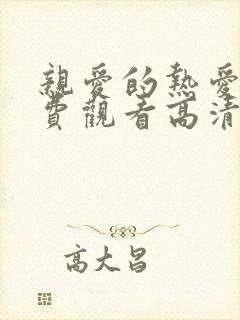 親愛的熱愛
費觀看高清
高大昌